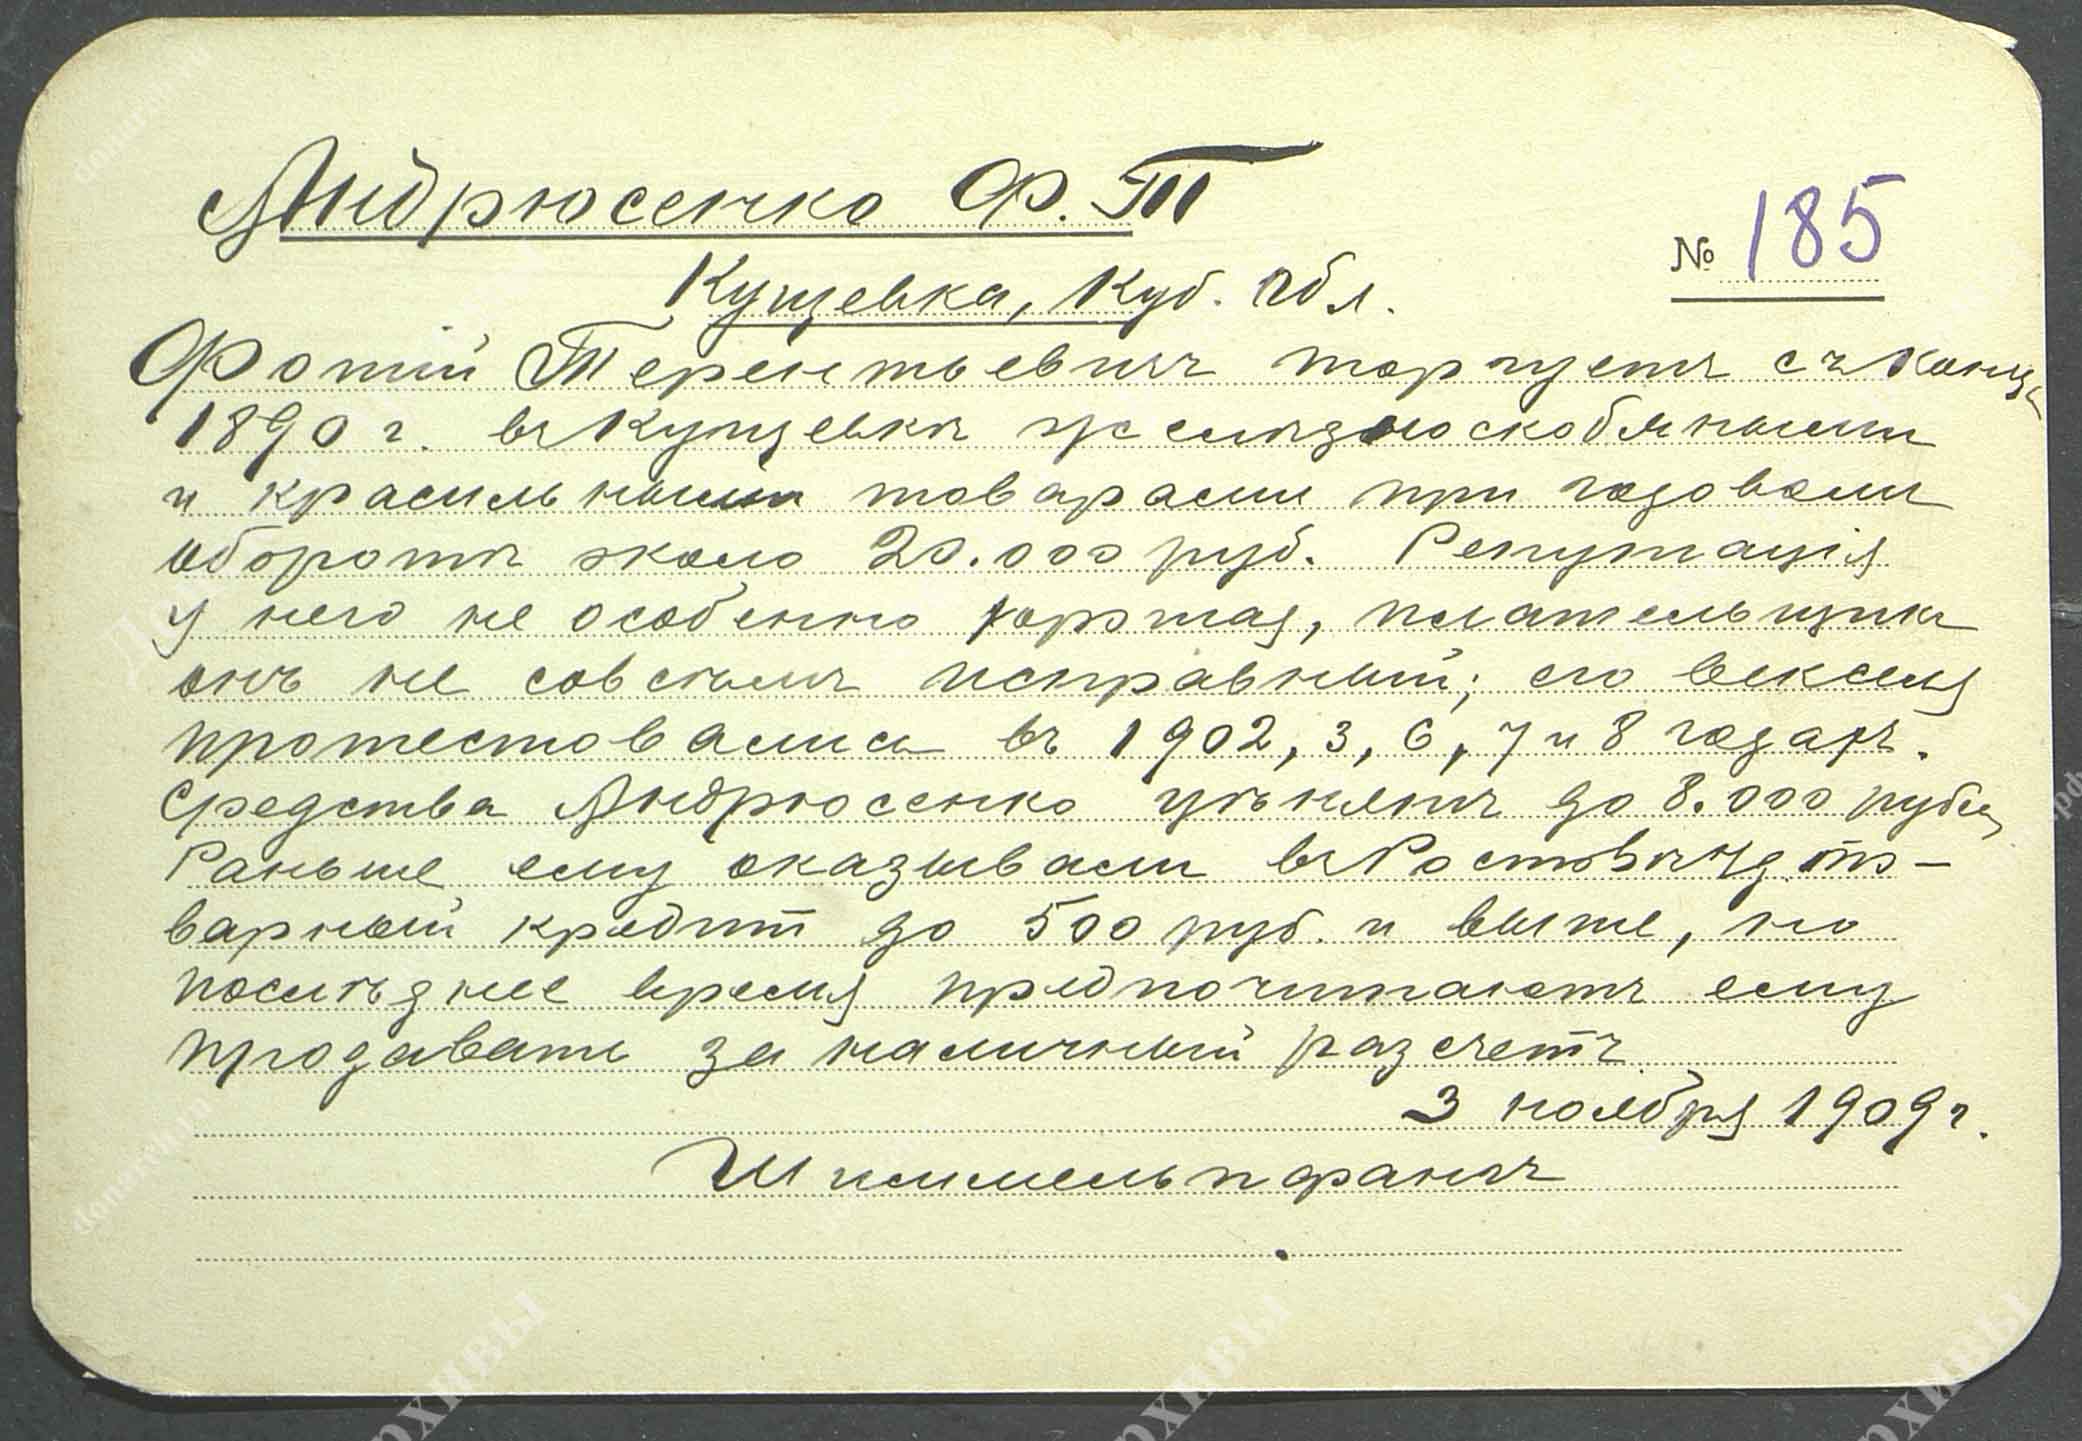 Андрюсенко Ф. Т
№ 185
Кущевка, Куб. Обл.
Фотій Терентьевичъ торгуетъ съ конца
1890 г. въ Кущевкѣ желѣзноскобяными
и красильными товарами при годовомъ
оборотѣ около 20.000 руб. Репутація
у него не особенно хорошая, плательщикъ
онъ не совсѣмъ исправный; его векселя
протестовались въ 1902, 3, 6, 7 и 8 годахъ.
Средства Андрюсенко цѣнятъ до 8.000 рублей
Раньше ему оказывали въ Ростовѣ н/Д. то-
варный кредитъ до 500 руб. и выше, но
послѣднее время предпочитаютъ ему
продавать за наличный разсчетъ
3 ноября 1909 г.
Шиммельпфанъ